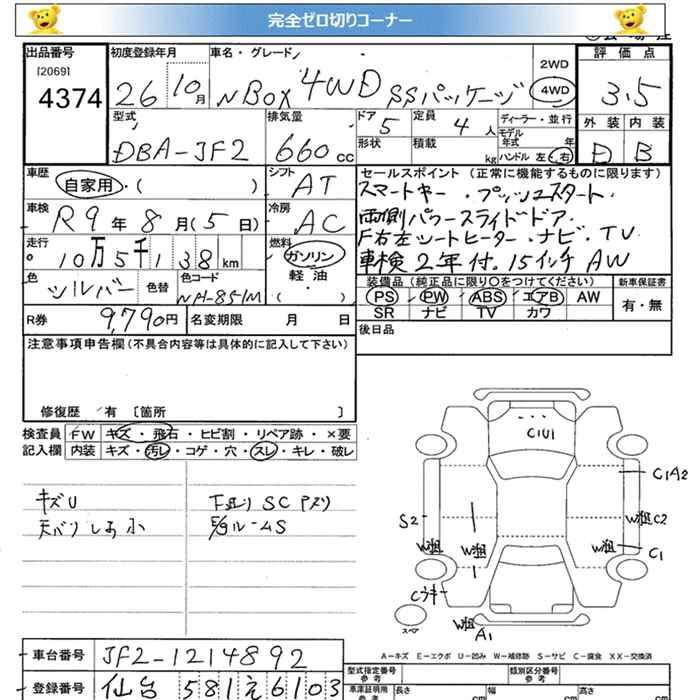 完全ゼロ切りコーナー
出品番号
[2069]
4374
初度登録年月
26 10月
車名・グレード
NBOX 4WD SSパッケージ
2WD
4WD
評価点
3.5
外装 内装
D B
型式
DBA-JF2
排気量
660cc
ドア 5
形状
定員 4人
積載 kg
ディーラー・並行
モデル年式 年
ハンドル 左・右
車歴
自家用・( )
シフト
AT
車検
R9年8月(5日)
冷房
AC
走行
10万5千138km
燃料
ガソリン
軽油
( )
色
シルバー
色替
色コード
NH-851M
R券
9,790円
名変期限 月 日
セールスポイント (正常に機能するものに限ります)
スマートキー・プッシュスタート・
両側パワースライドドア・
F右左シートヒーター・ナビ・TV
車検2年付・15インチAW
装備品(純正品に限り○をつけてください)
PS PW ABS エアB AW
SR ナビ TV カワ
新車保証書
有・無
後日品
注意事項申告欄(不具合内容等は具体的に記入して下さい)
修復歴 有 〔箇所 〕
検査員記入欄
FW キズ・飛石・ヒビ割・リペア跡・×要
内装 キズ・汚レ・コゲ・穴・スレ・キレ・破レ
キズU
天バリしみ小
下廻りSCアズリ
E/GルームS
C1U1
C1A2
S2
W粗C2
W粗
W粗
W粗
C1
Cラキー
W粗
A1
スペア
A―キズ E―エクボ U―凹み W―補修跡 S―サビ C―腐食 XX―交換済
車台番号
JF2-1214892
登録番号
仙台 581 え 6103
型式指定番号
参考
類別区分番号
参考
車庫証明用
参考
長さ cm
幅 cm
高さ cm